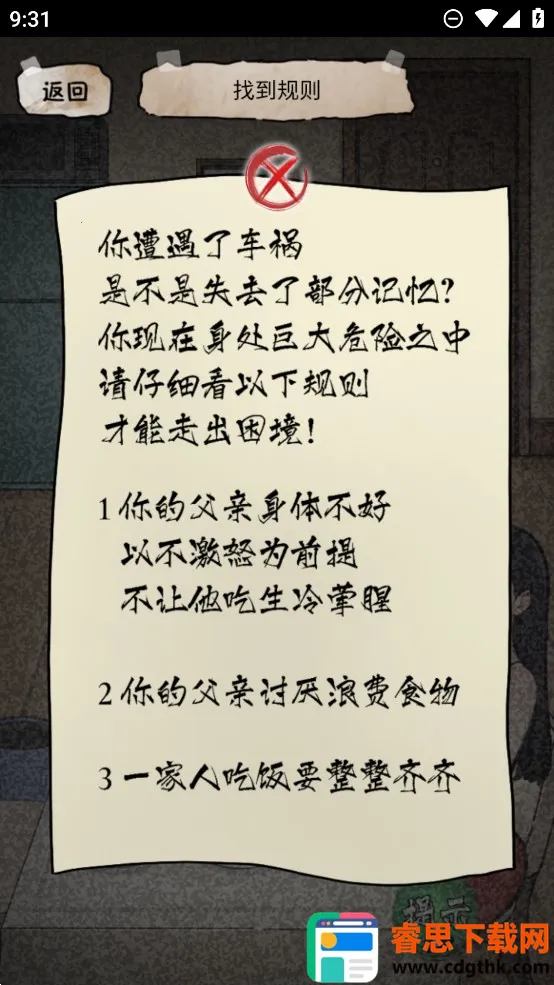 9:31
返回
找到规则
你遭遇了车祸
是不是失去了部分记忆?
你现在身处巨大危险之中
请仔细看以下规则
才能走出困境!
1 你的父亲身体不好
以不激怒为前提
不让他吃生冷荤腥
2 你的父亲讨厌浪费食物
3 一家人吃饭要整整齐齐
提示
睿思下载网
www.cdgthk.com